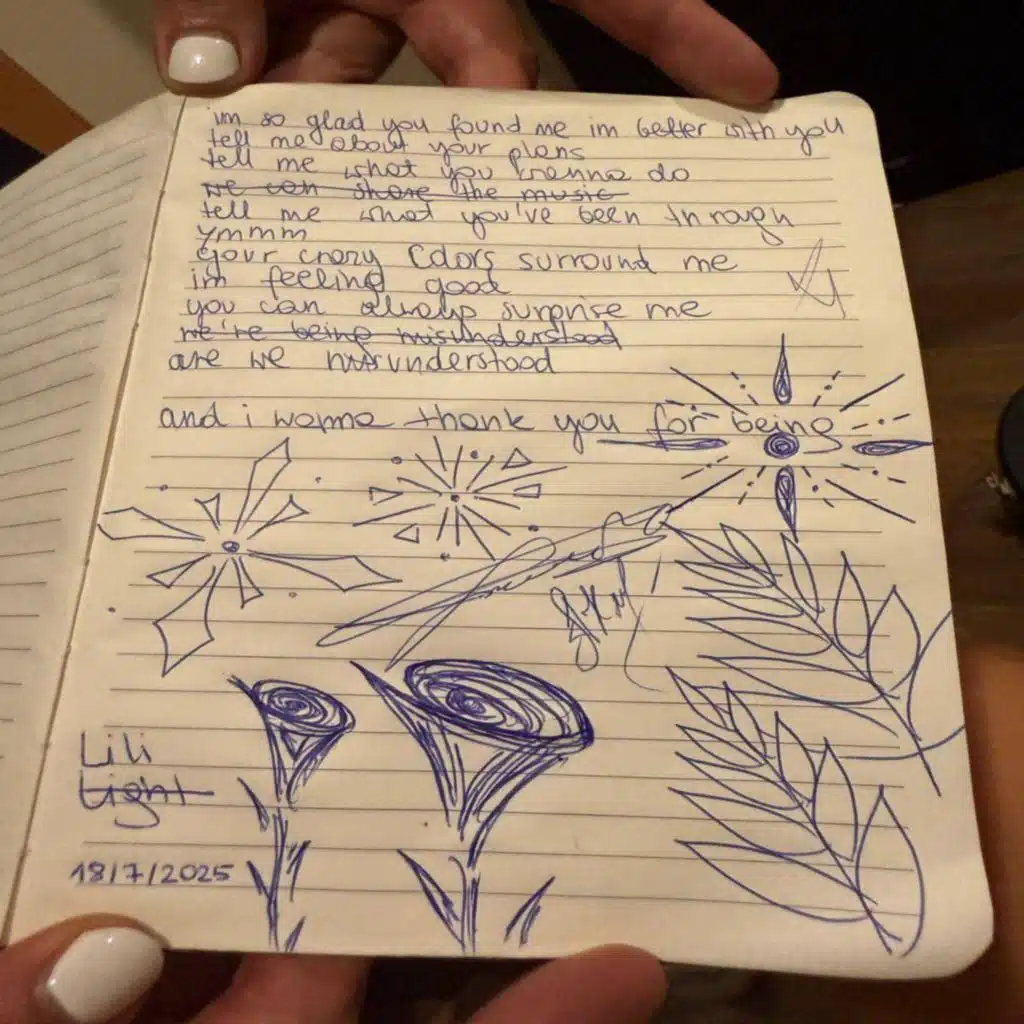 im so glad you found me im better with you
tell me about your plans
tell me what you wanna do
we can share the music
tell me what you've been through
ymmm
your crazy colors surround me
im feeling good
you can always surprise me
we're being misunderstood
are we misunderstood
and i wanna thank you for being
Lili
Light
18/7/2025